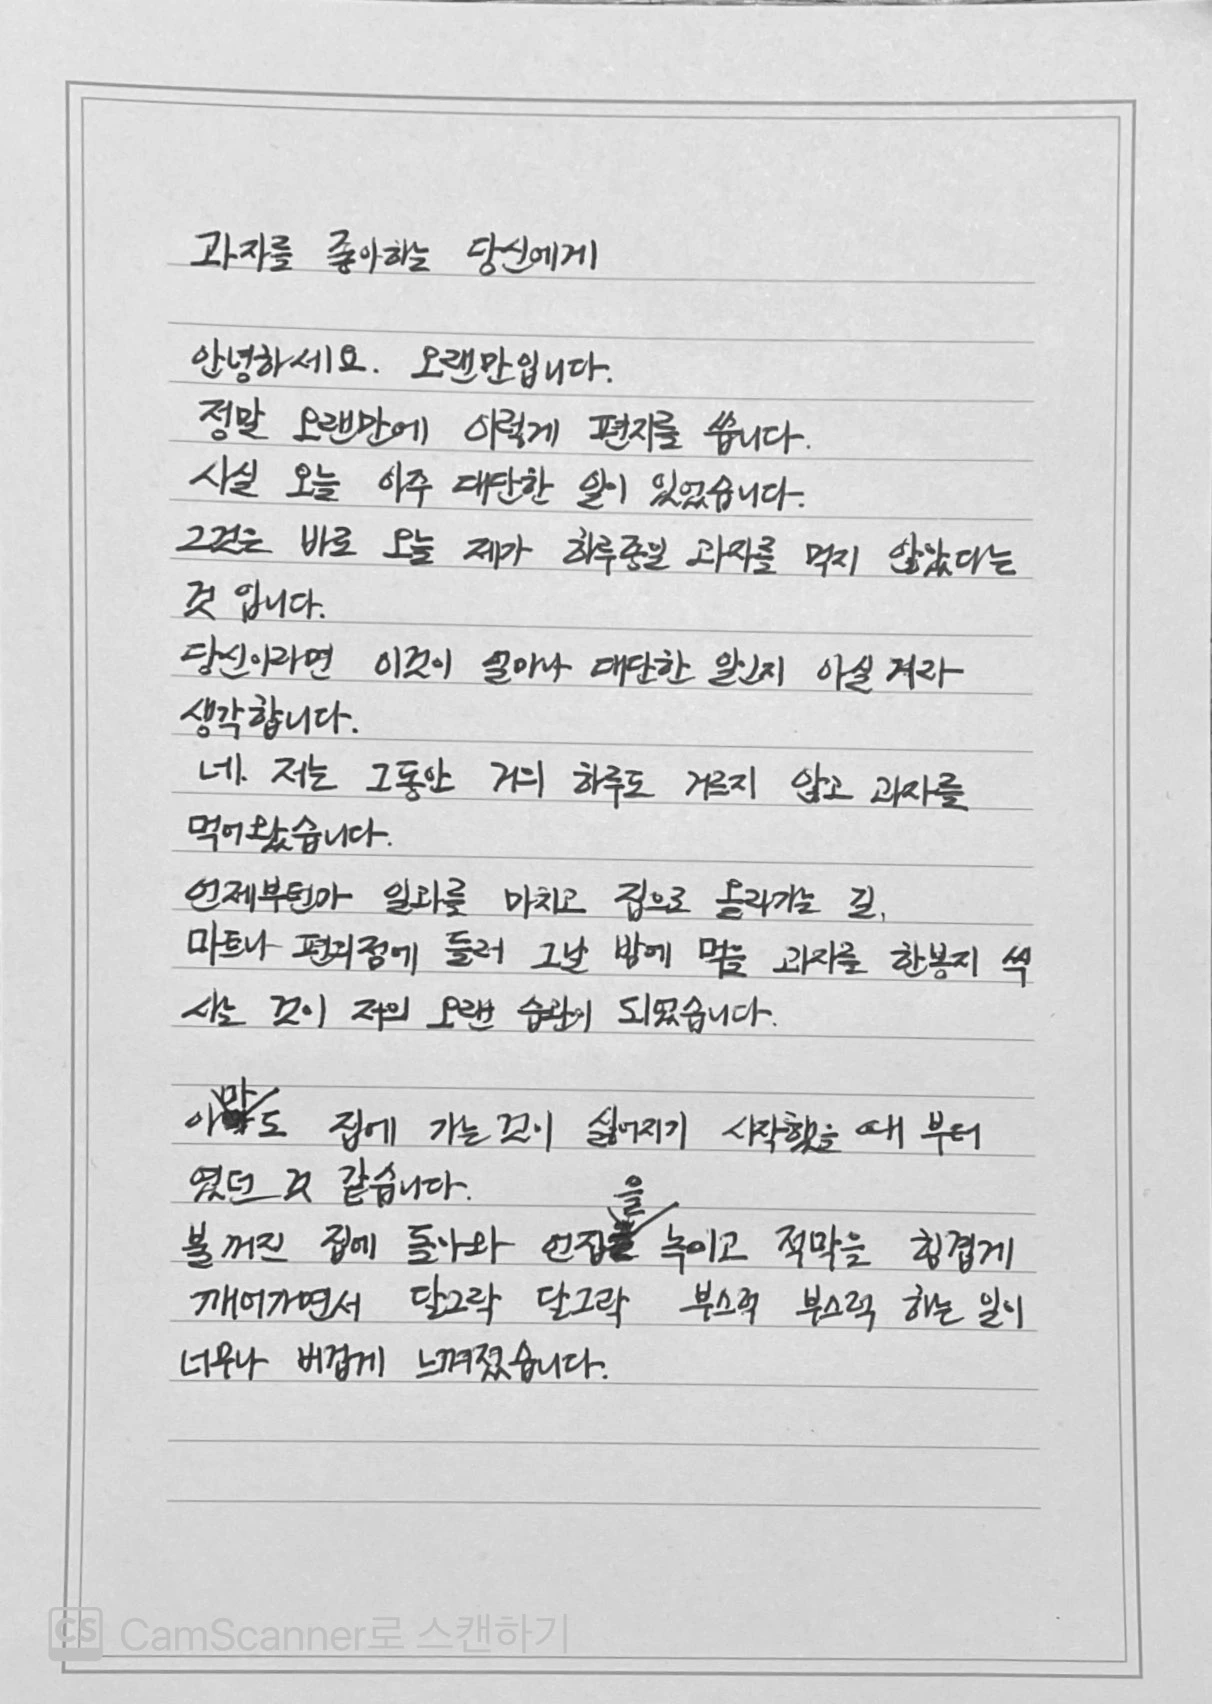 과자를 좋아하는 당신에게
안녕하세요. 오랜만입니다.
정말 오랜만에 이렇게 편지를 씁니다.
사실 오늘 아주 대단한 일이 있었습니다.
그것은 바로 오늘 제가 하루종일 과자를 먹지 않았다는
것 입니다.
당신이라면 이것이 얼마나 대단한 일인지 아실 거라
생각합니다.
네. 저는 그동안 거의 하루도 거르지 않고 과자를
먹어왔습니다.
언제부턴가 일과를 마치고 집으로 올라가는 길,
마트나 편의점에 들러 그날 밤에 먹을 과자를 한봉지 씩
사는 것이 저의 오랜 습관이 되었습니다.
아마도 집에 가는 것이 싫어지기 시작했을 때 부터
였던 것 같습니다.
불 꺼진 집에 돌아와 언집을 녹이고 적막을 힘겹게
깨어가면서 달그락 달그락 부스럭 부스럭 하는 일이
너무나 버겁게 느껴졌습니다.
CS CamScanner로 스캔하기